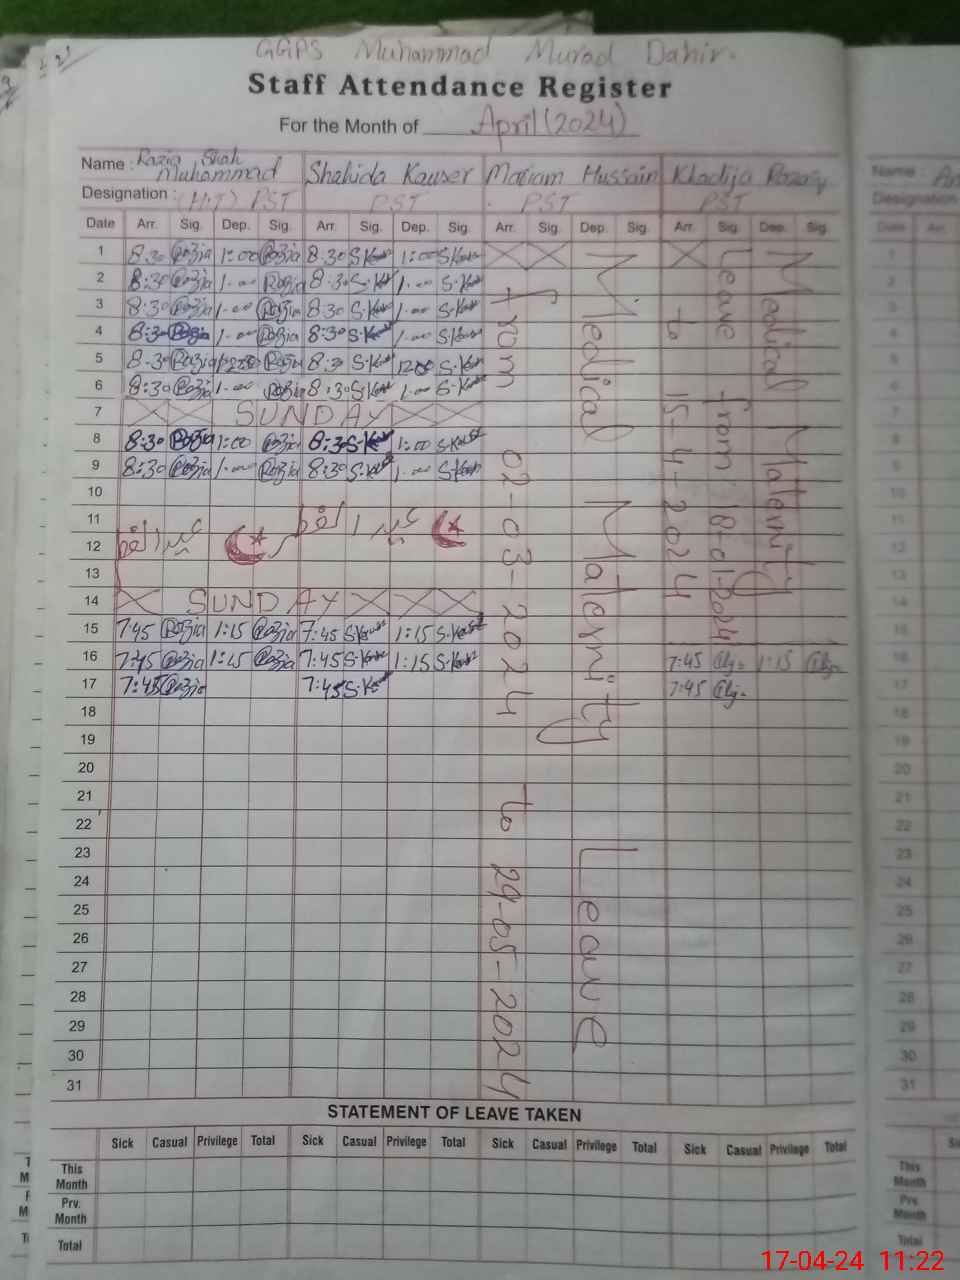 GGPS Muhammad Murad Dahir.
Staff Attendance Register
For the Month of April (2024)
Name : Razia Shah Muhammad Shahida Kauser Mariam Hussain Khadija
Designation : (H.T) PST PST PST PST
Date Arr. Sig. Dep. Sig. Arr. Sig. Dep. Sig. Arr. Sig. Dep. Sig. Arr. Sig. Dep. Sig.
1 8:30 Razia 1:00 Razia 8:30 S.Kauser 1:00 S.Kauser
2 8:30 Razia 1:00 Razia 8:30 S.Kauser 1:00 S.Kauser
3 8:30 Razia 1:00 Razia 8:30 S.Kauser 1:00 S.Kauser
4 8:30 Razia 1:00 Razia 8:30 S.Kauser 1:00 S.Kauser
5 8:30 Razia Razia 8:30 S.Kauser 1200 S.Kauser
6 8:30 Razia 1:00 Razia 8:30 S.Kauser 1:00 S.Kauser
7 SUNDAY
8 8:30 Razia 1:00 Razia 8:30 S.Kauser 1:00 S.Kauser
9 8:30 Razia 1:00 Razia 8:30 S.Kauser 1:00 S.Kauser
10
11
12 عید الفطر عید الفطر
13
14 SUNDAY
15 7:45 Razia 1:15 Razia 7:45 S.Kauser 1:15 S.Kauser
16 7:45 Razia 1:15 Razia 7:45 S.Kauser 1:15 S.Kauser 7:45 1:15
17 7:45 Razia 7:45 S.Kauser 7:45
18
19
20
21
22
23
24
25
26
27
28
29
30
31
Medical Maternity Leave
from 02-03-2024 to 29-05-2024
Medical Maternity
Leave from 18-01-2024
to 15-4-2024
STATEMENT OF LEAVE TAKEN
Sick Casual Privilege Total Sick Casual Privilege Total Sick Casual Privilege Total Sick Casual Privilege Total
This Month
Prv. Month
Total
Name :
Designation
Date Arr.
This Month
Prv. Month
Total
17-04-24 11:22